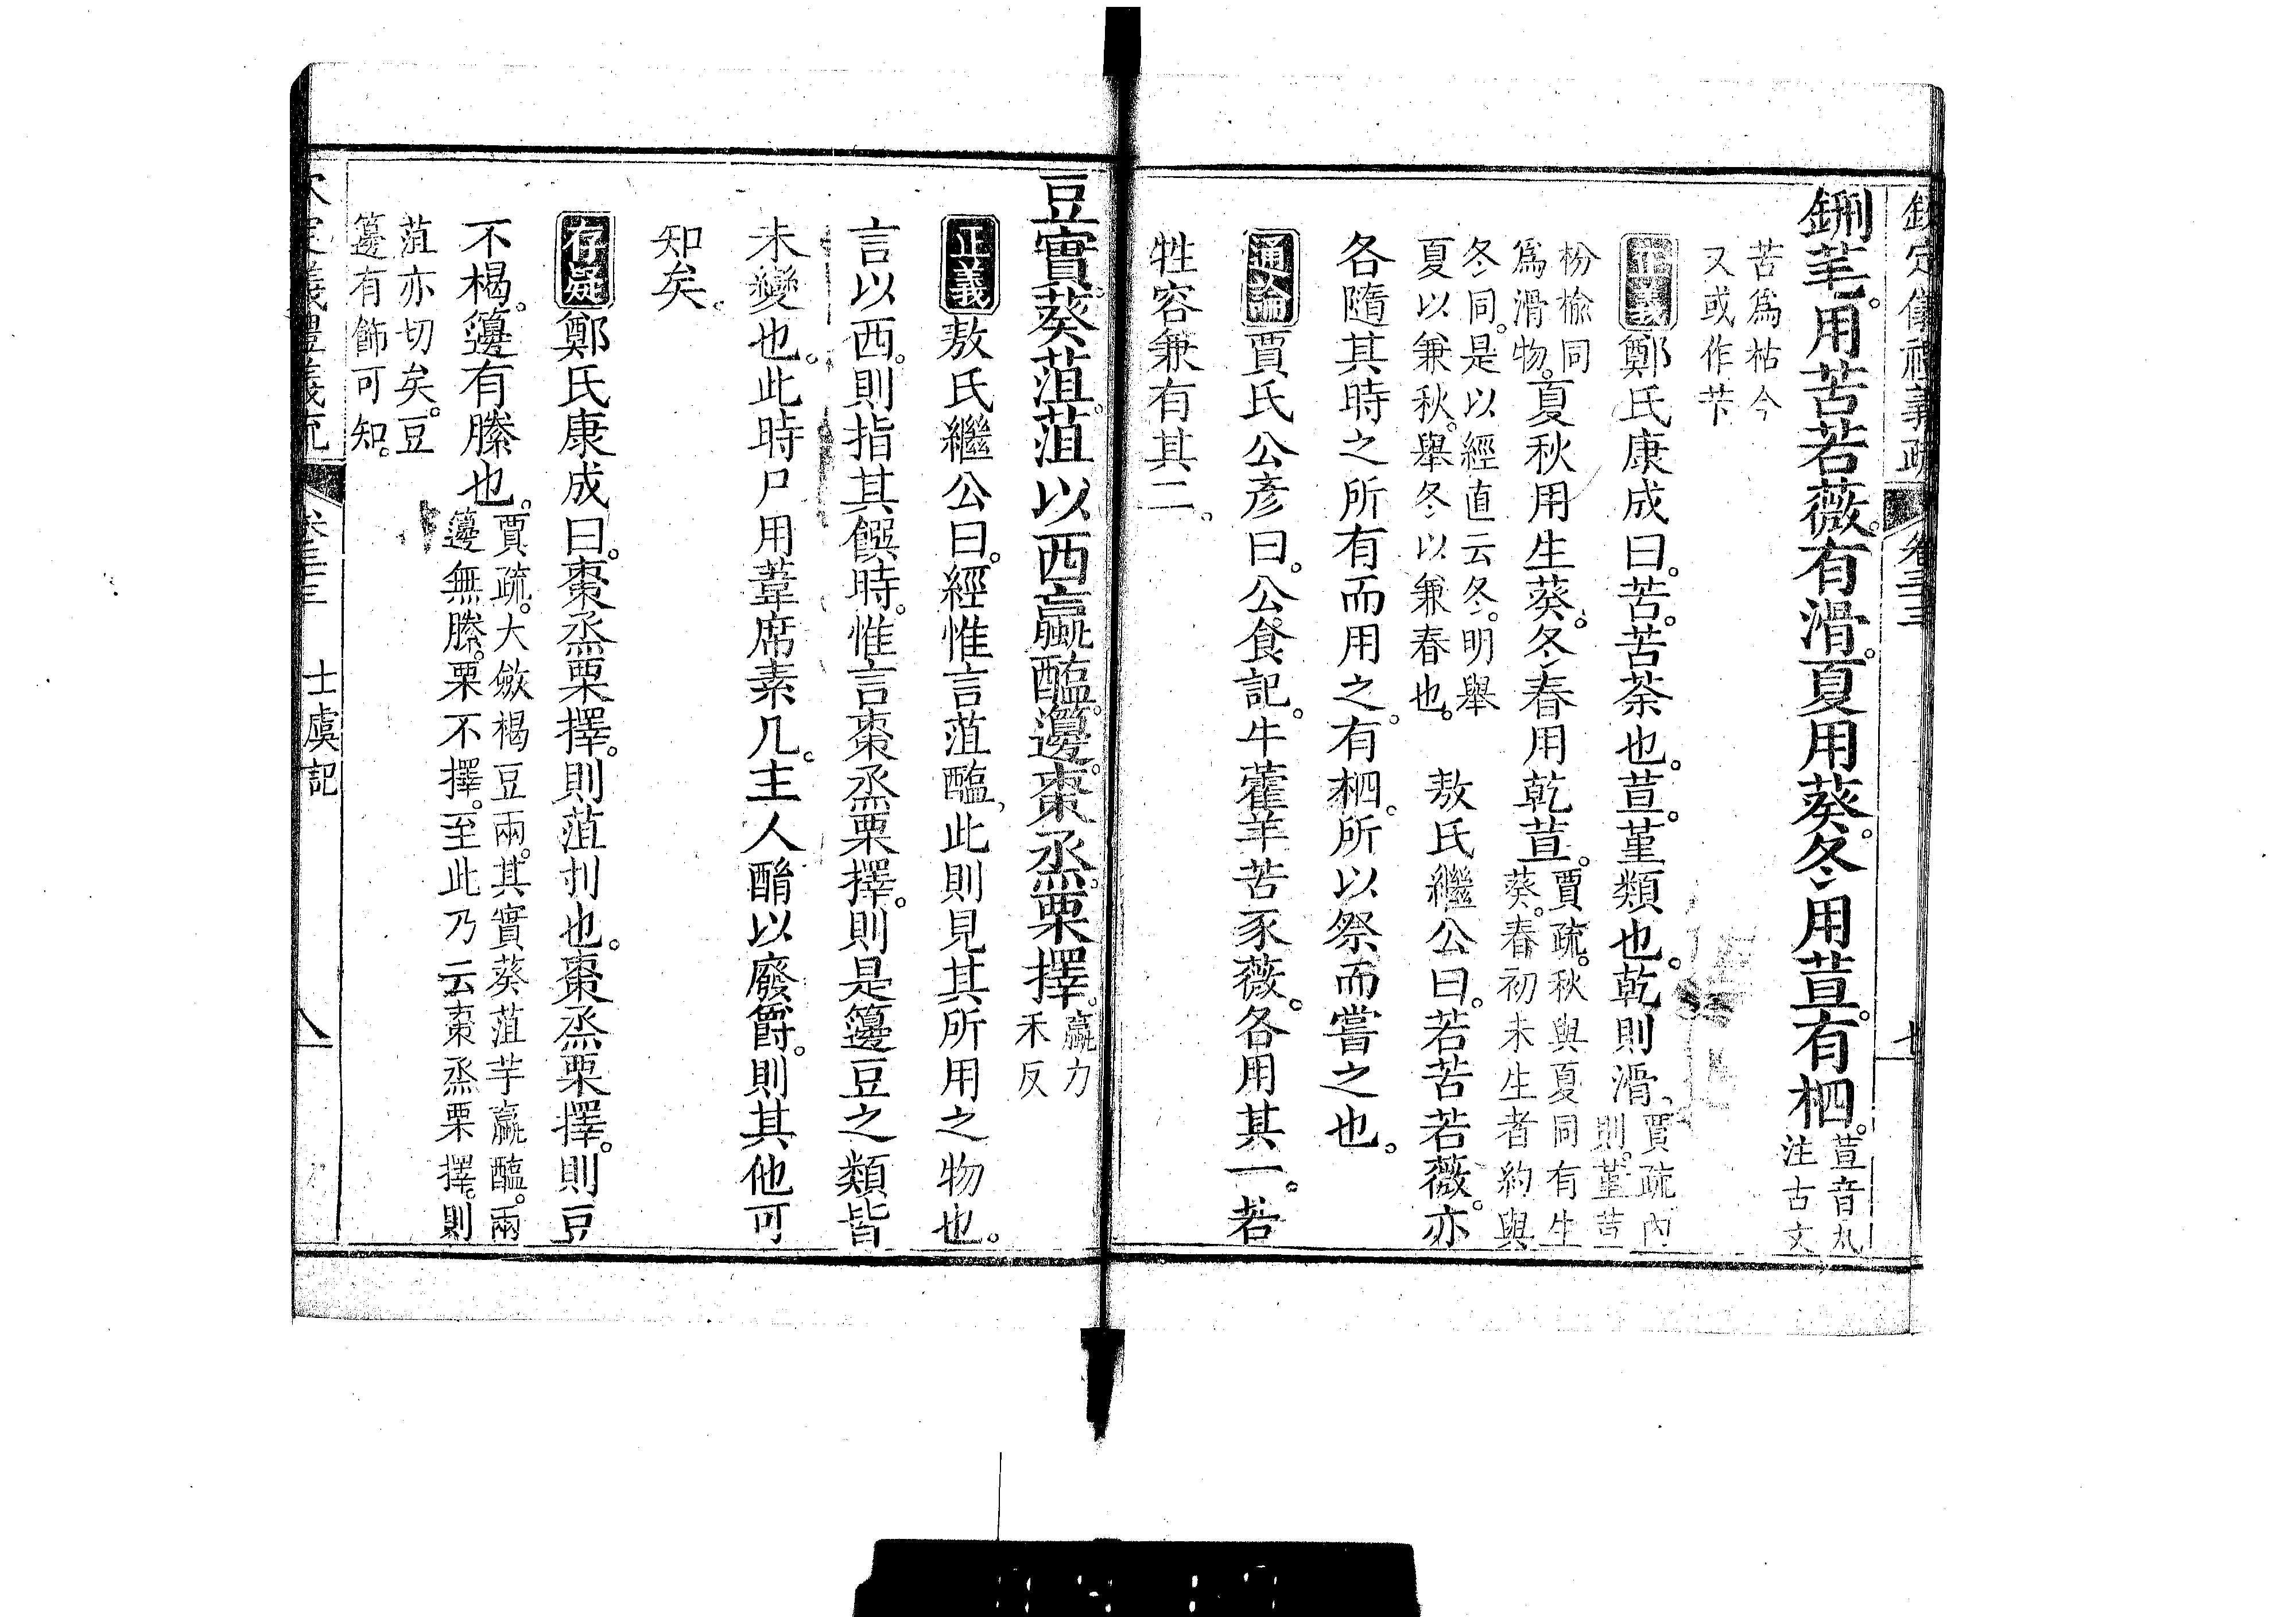 欽定儀禮義疏 卷三十三 七
鉶芼。用苦若薇。有滑。夏用葵。冬用荁。有柶。荁音丸
注古文
苦爲枯今
又或作芐
正義鄭氏康成曰。苦。苦荼也。荁。堇類也。乾則滑、賈疏內
則。堇荁
枌榆同
爲滑物。夏秋用生葵。冬春用乾荁。賈疏。秋與夏同有生
葵。春初未生者約與
冬同。是以經直云冬。明舉
夏以兼秋。舉冬以兼春也。 敖氏繼公曰。若苦若薇。亦
各隨其時之所有而用之。有柶。所以祭而嘗之也。
通論賈氏公彥曰。公食記。牛藿羊苦豕薇。各用其一。若
牲容兼有其二。
豆實。葵菹。菹以西蠃醢。籩。棗烝栗擇。蠃力
禾反
正義敖氏繼公曰。經惟言菹醢、此則見其所用之物也。
言以西。則指其饌時。惟言棗烝栗擇。則是籩豆之類皆
未變也。此時尸用葦席素几。主人酳以廢爵。則其他可
知矣。
存疑鄭氏康成曰。棗烝栗擇。則菹刌也。棗烝栗擇。則豆
不楬。籩有縢也。賈疏。大斂楬豆兩。其實葵菹芋蠃醢。兩
籩無縢。栗不擇。至此乃云棗烝栗擇。則
菹亦切矣。豆
籩有飾可知。
士虞記 八